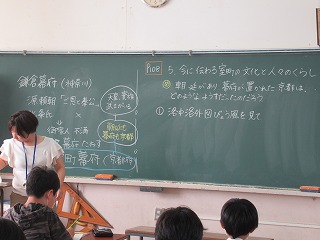 鎌倉幕府(神奈川)
源頼朝「ご恩と奉公」
北条氏 ×
御家人 不満
幕府 たおす
町幕府(京都府)
天皇、貴族
朝廷も
幕府も京都
P.68 5. 今に伝わる室町の文化と人々のくらし
朝廷があり、幕府が置かれた京都は、
どのようなようすだったのだろう
① 洛中洛外図びょう風を見て